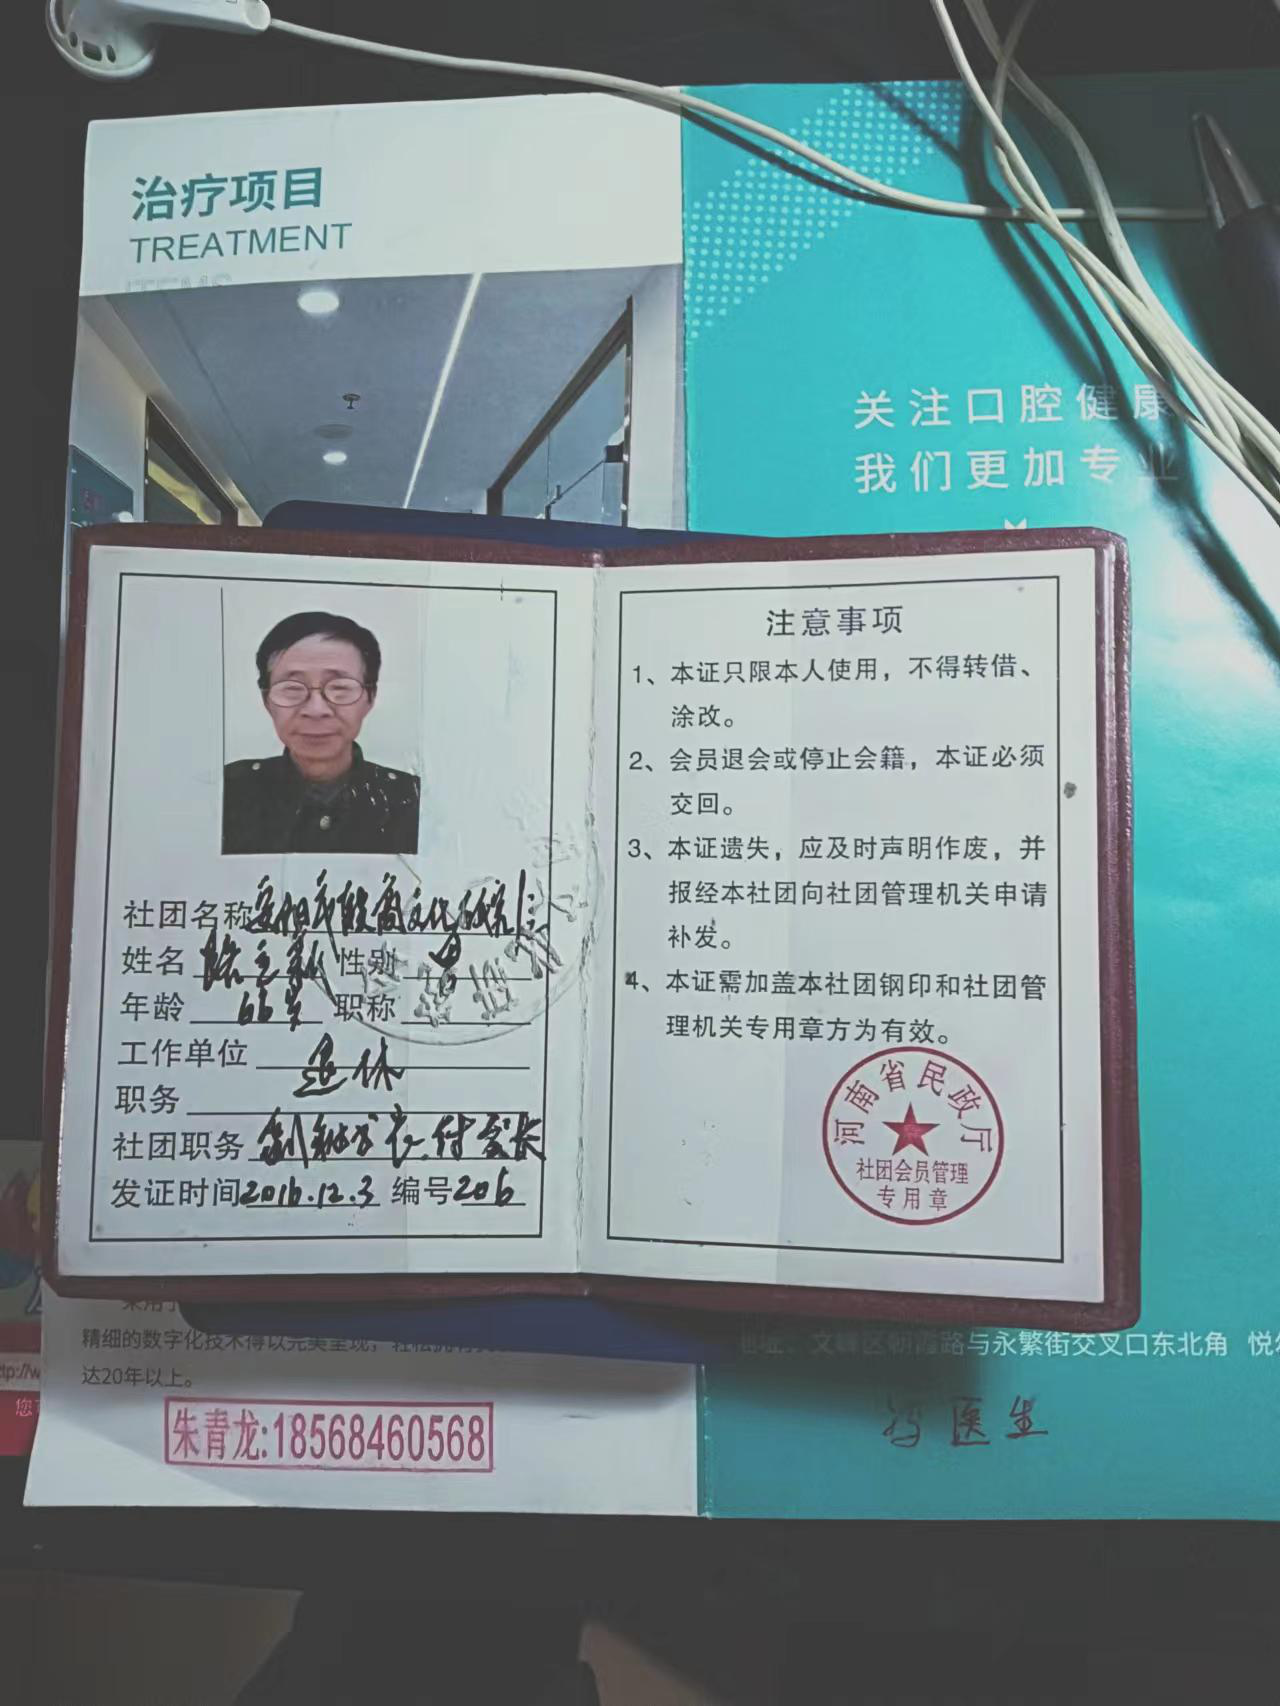 治疗项目
TREATMENT
ITEMS
关注口腔健康
我们更加专业
社团名称 安阳 殷商文化研究
姓名 性别 男
年龄 66岁 职称
工作单位 退休
职务
社团职务 副秘书长 付会长
发证时间 2016.12.3 编号 206
注意事项
1、本证只限本人使用，不得转借、
涂改。
2、会员退会或停止会籍，本证必须
交回。
3、本证遗失，应及时声明作废，并
报经本社团向社团管理机关申请
补发。
4、本证需加盖本社团钢印和社团管
理机关专用章方为有效。
河南省民政厅
社团会员管理
专用章
精细的数字化技术得以完美呈现，
达20年以上。
地址：文峰区朝霞路与永繁街交叉口东北角
朱青龙:18568460568
医生